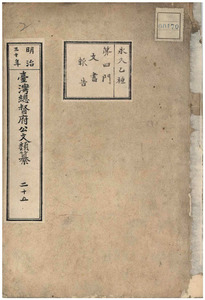 永久乙種
第四門
文書
報告
明治
三十年
臺灣總督府公文類纂
二十五